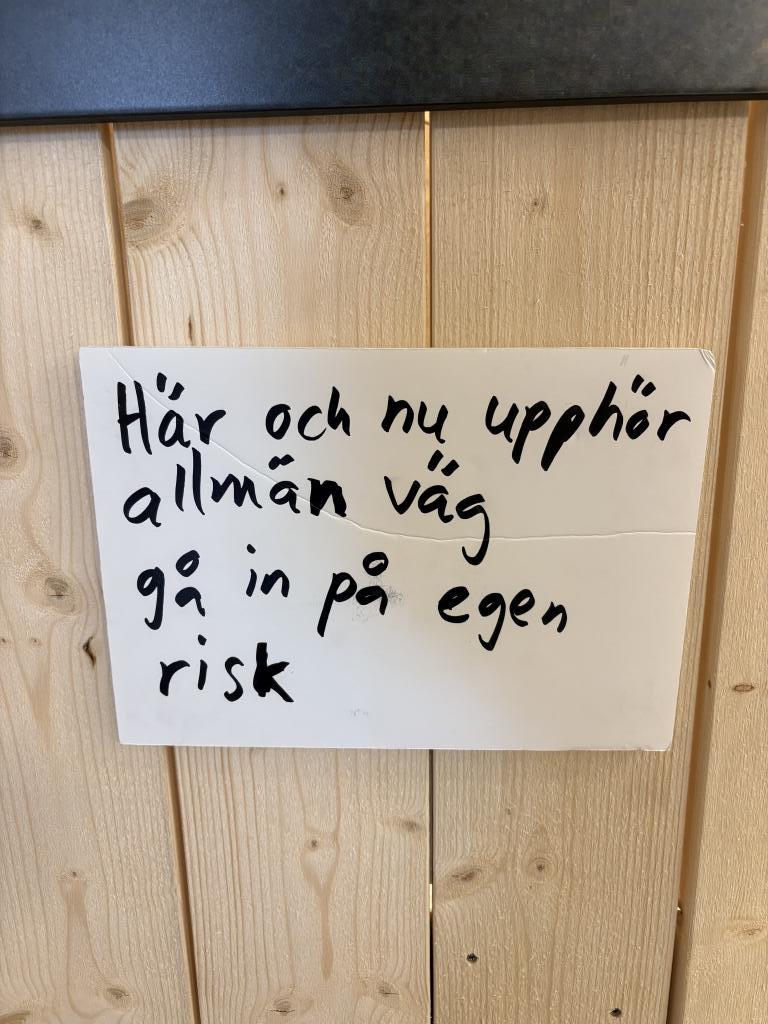 Här och nu upphör
allmän väg
gå in på egen
risk